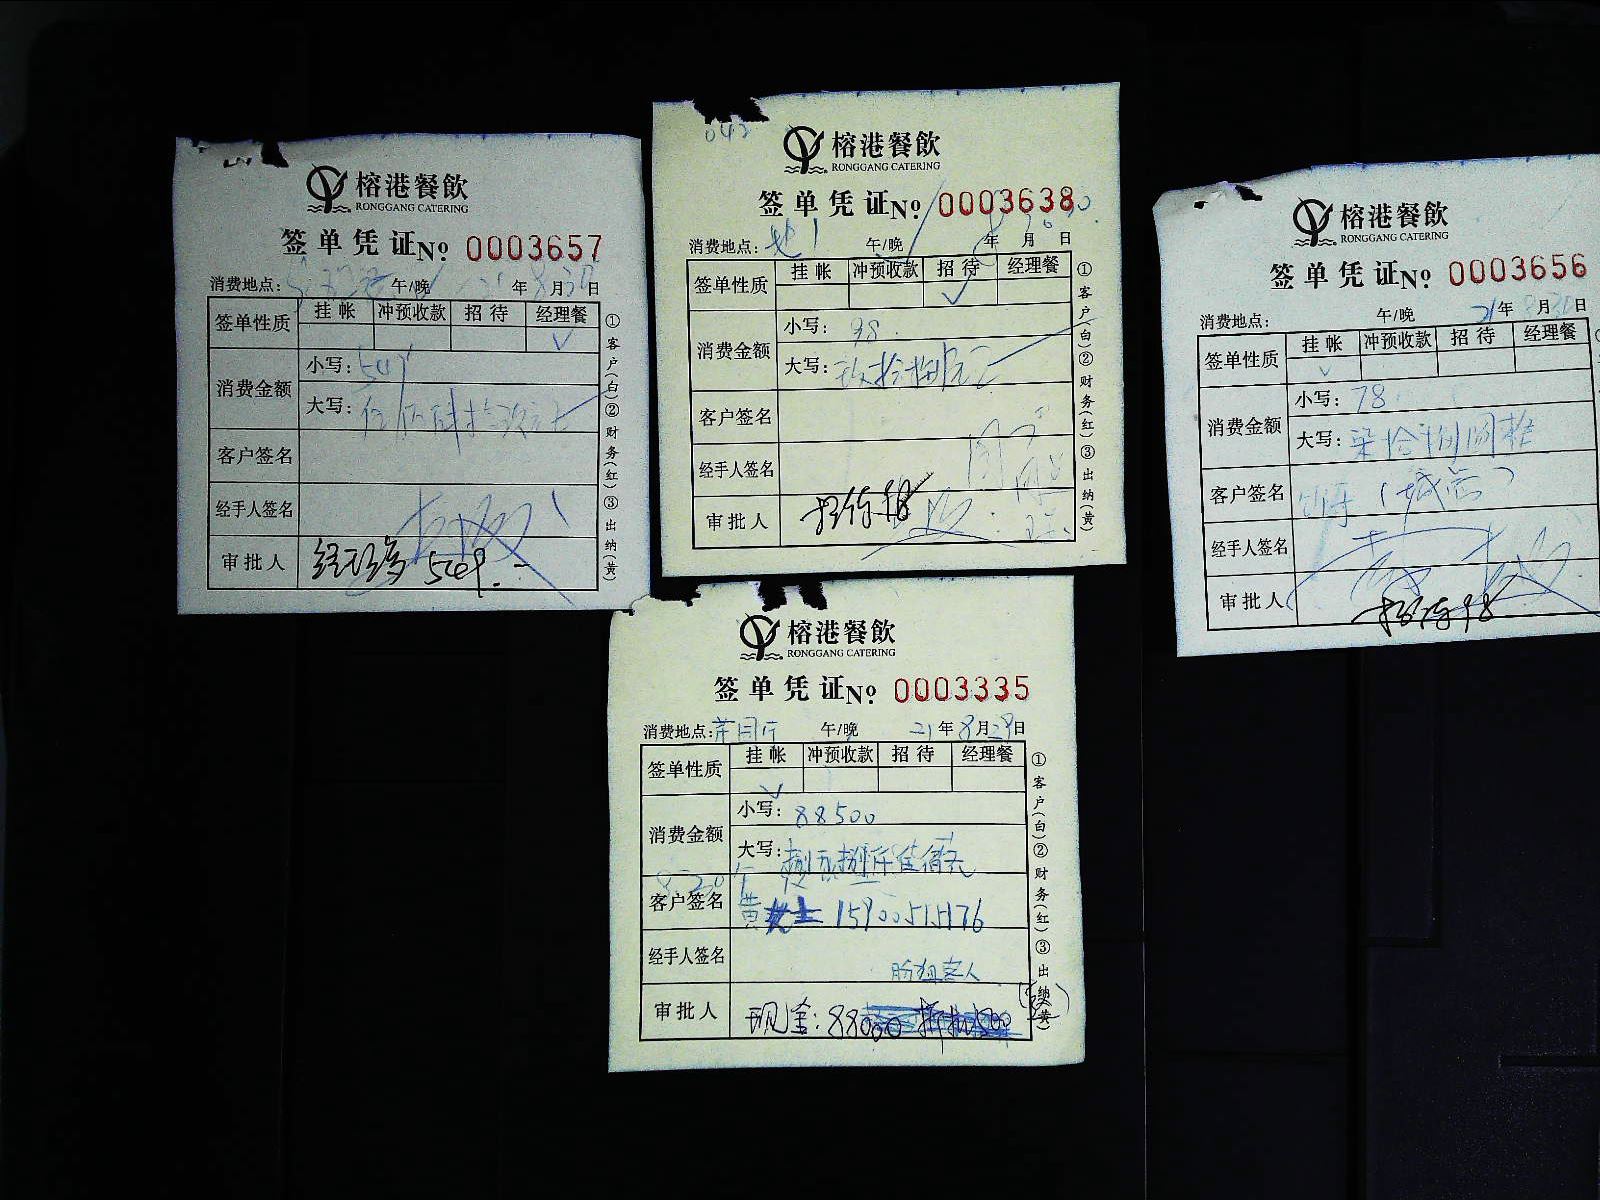 榕港餐飲
RONGGANG CATERING
签单凭证№ 0003657
消费地点: 午/晚 年8月30日
签单性质 挂帐 冲预收款 招待 经理餐
消费金额
小写: 549
大写: 伍佰肆拾玖元正
客户签名
经手人签名
审批人 549.-
①客户(白)②财务(红)③出纳(黄)
042
榕港餐飲
RONGGANG CATERING
签单凭证№ 0003638
消费地点: 午/晚 年 月 日
签单性质 挂帐 冲预收款 招待 经理餐
消费金额
小写: 98.
大写: 玖拾捌元正
客户签名
经手人签名
审批人 招待
①客户(白)②财务(红)③出纳(黄)
榕港餐飲
RONGGANG CATERING
签单凭证№ 0003656
消费地点: 午/晚 21年8月30日
签单性质 挂帐 冲预收款 招待 经理餐
消费金额
小写: 78
大写: 柒拾捌圆整
客户签名
经手人签名
审批人 招待
榕港餐飲
RONGGANG CATERING
签单凭证№ 0003335
消费地点: 午/晚 21年8月29日
签单性质 挂帐 冲预收款 招待 经理餐
消费金额
小写: 88500
大写: 捌万捌仟伍佰元
客户签名 黄女士 15900515176
经手人签名
审批人 现金: 88000
①客户(白)②财务(红)③出纳(黄)